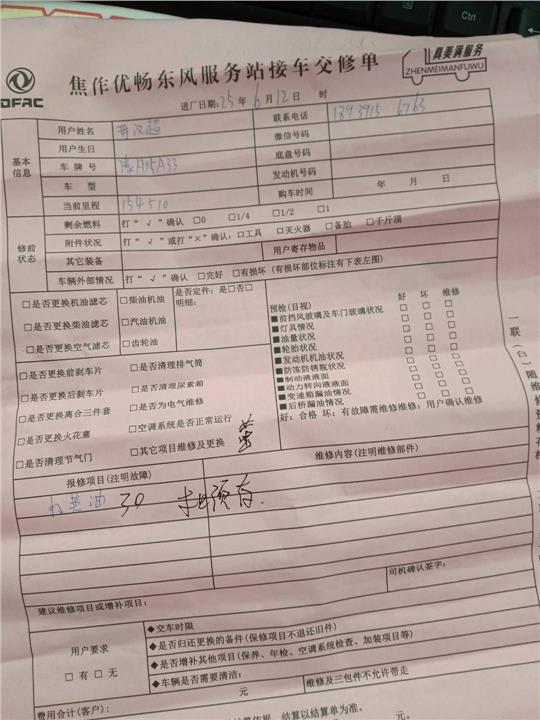 Ctrl
DFAC
焦作优畅东风服务站接车交修单
真美满服务
ZHENMEIMANFUWU
进厂日期:25年6月12日 时
基本信息
用户姓名
联系电话 1893915 6763
用户生日
微信号码
车牌号 豫A15A33
底盘号码
车型
发动机号码
当前里程 154510
购车时间 年 月 日
修前状态
剩余燃料 打“√”确认 □0 □1/4 □1/2 □1
附件状况 打“√”或打“×”确认:□工具 □灭火器 □备胎 □千斤顶
其它装备 用户寄存物品
车辆外部情况 打“√”确认 □完好 □有损坏(有损坏部位标注有下表左图)
□是否更换机油滤芯 □柴油机油 是否定件:是□否□
明细:
□是否更换柴油滤芯 □汽油机油
□是否更换空气滤芯 □齿轮油
预检(目视) 好 坏 维修
■前挡风玻璃及车门玻璃状况 □ □ □
■灯具情况 □ □ □
■油量状况 □ □ □
■轮胎状况 □ □ □
■发动机机油状况 □ □ □
■防冻防锈液状况 □ □ □
■制动液液面 □ □ □
■动力转向液液面 □ □ □
■变速箱漏油情况 □ □ □
■后桥漏油情况 □ □ □
好:合格 坏:有故障需维修维修:用户确认维修
□是否更换前刹车片 □是否清理排气筒
□是否更换后刹车片 □是否清理尿素箱
□是否更换离合三件套 □是否为电气维修
□是否更换火花塞 □空调系统是否正常运行
□是否清理节气门 □其它项目维修及更换
一联(白)随维修
报修项目(注明故障) 维修内容(注明维修部件)
油 30
司机确认签字:
建议维修项目或增补项目:
用户要求
□有 □无
◆交车时限
◆是否归还更换的备件(保修项目不退还旧件)
◆是否增补其他项目(保养、年检、空调系统检查、加装项目等)
◆车辆是否需要清洁:
费用合计(客户): 元 维修及三包件不允许带走
结算以结算单为准。 元。